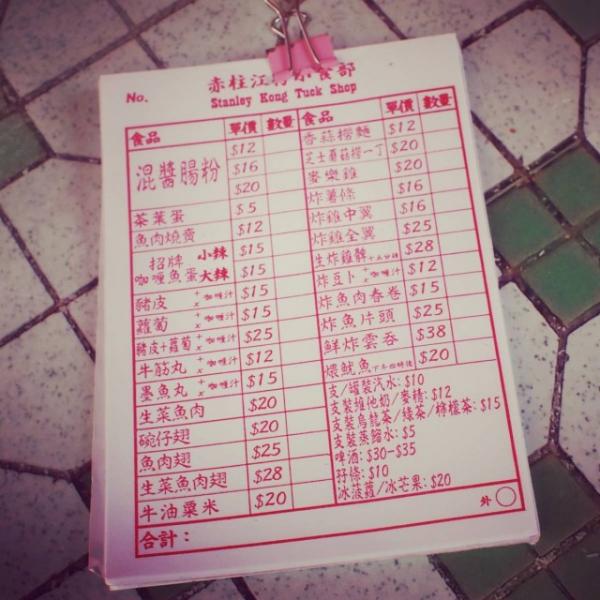 No.
赤柱江
食部
Stanley Kong Tuck Shop
食品 單價 數量
混醬腸粉 $12
$16
$20
茶葉蛋 $5
魚肉燒賣 $12
招牌 小辣 $15
咖喱魚蛋 大辣 $15
豬皮 + x 咖喱汁 $15
蘿蔔 + x 咖喱汁 $15
豬皮+蘿蔔 + x 咖喱汁 $25
牛筋丸 + x 咖喱汁 $12
墨魚丸 + x 咖喱汁 $15
生菜魚肉 $20
碗仔翅 $20
魚肉翅 $25
生菜魚肉翅 $28
牛油粟米 $20
食品 單價 數量
香蒜撈麵 $12
芝士蘑菇撈一丁 $20
麥樂雞 $20
炸薯條 $16
炸雞中翼 $16
炸雞全翼 $25
生炸雞髀 十五分鐘 $28
炸豆卜 + x 咖喱汁 $12
炸魚肉春卷 $15
炸魚片頭 $25
鮮炸雲吞 $38
煨魷魚 $20
支/罐裝汽水: $10
支裝維他奶/麥精: $12
支裝烏龍茶/綠茶/檸檬茶: $15
支裝蒸餾水: $5
啤酒: $30-$35
孖條: $10
冰菠蘿/冰芒果: $20
合計：
外